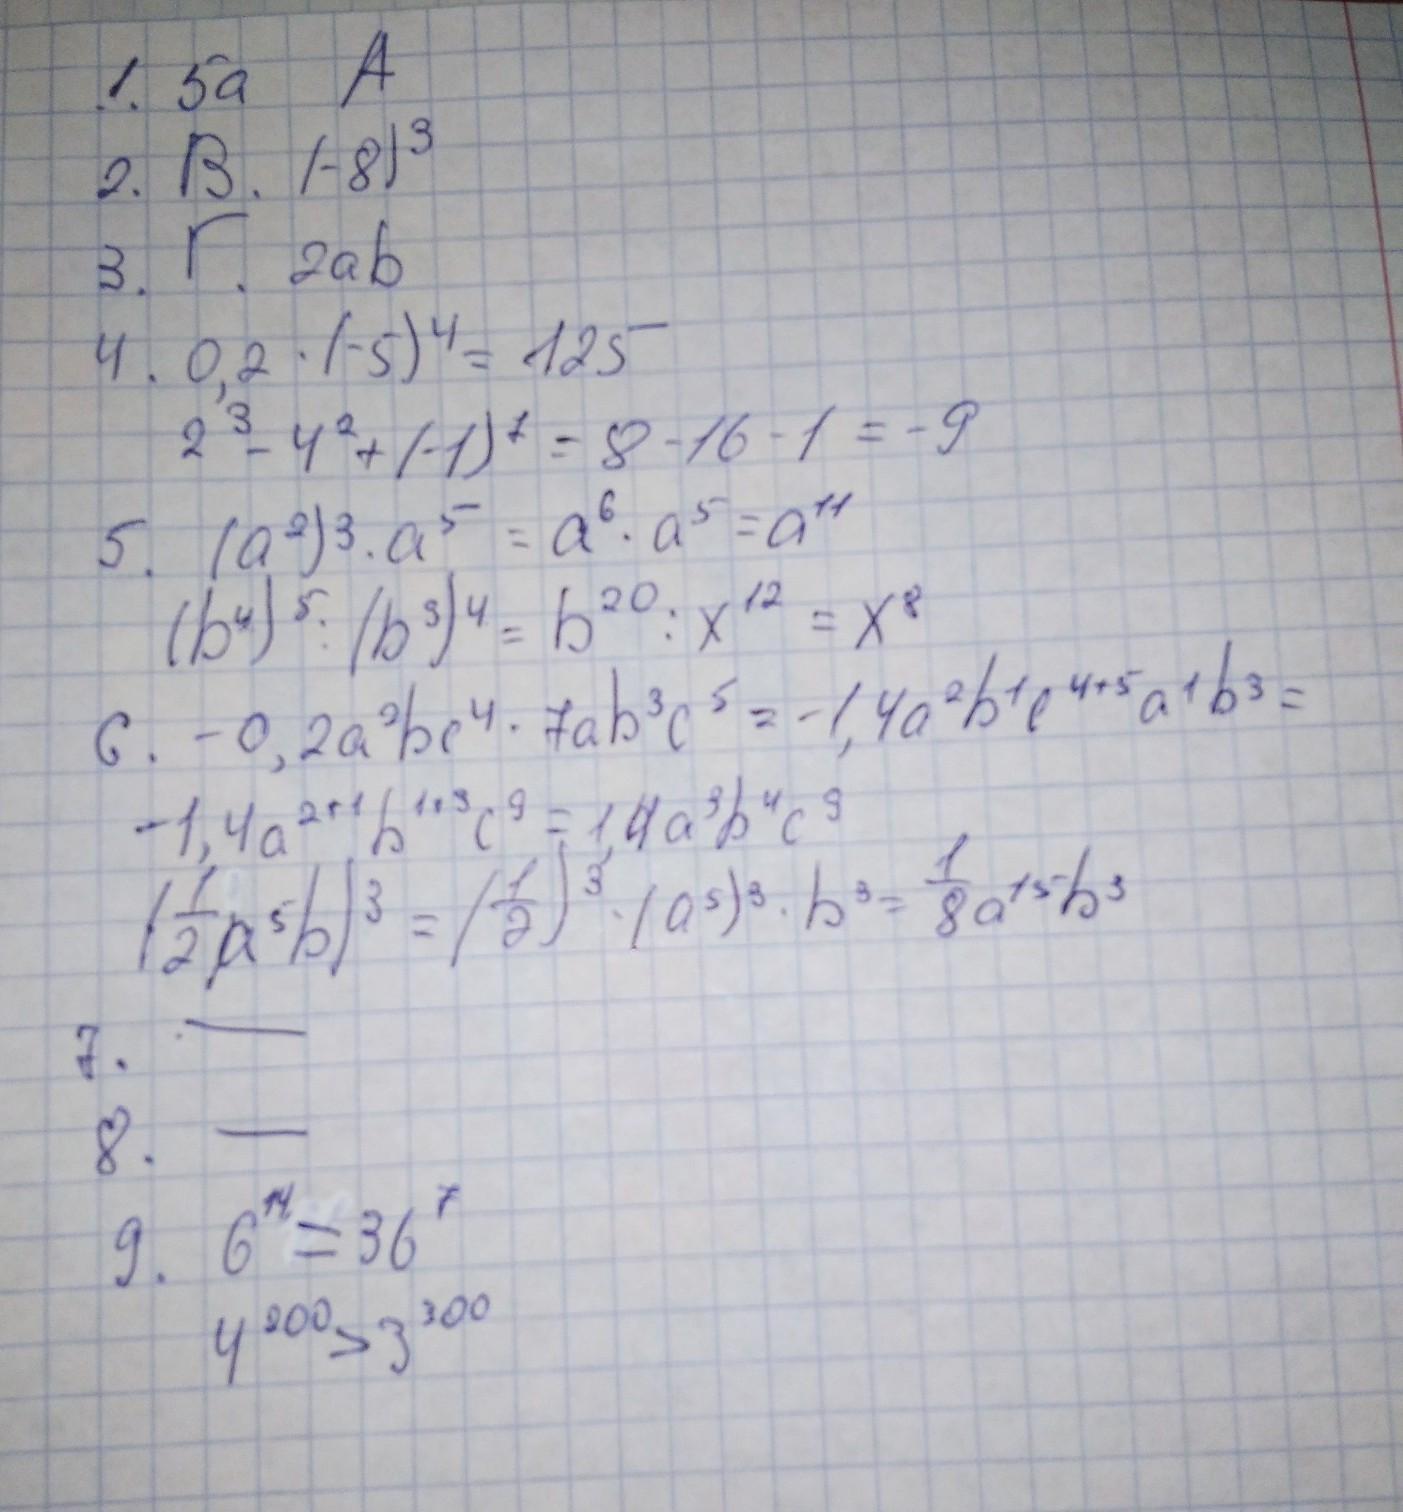 1. 5a A
2. В. (-8)³
3. Г. 2ab
4. 0,2 · (-5)⁴ = 125
2³ - 4² + (-1)⁷ = 8 - 16 - 1 = -9
5. (a²)³ · a⁵ = a⁶ · a⁵ = a¹¹
(b⁴)⁵ : (b³)⁴ = b²⁰ : x¹² = x⁸
6. -0,2a²bc⁴ · 7ab³c⁵ = -1,4a²b¹c⁴⁺⁵a¹b³ =
-1,4a²⁺¹b¹⁺³c⁹ = 1,4a³b⁴c⁹
(1/2a⁵b)³ = (1/2)³ · (a⁵)³ · b³ = 1/8a¹⁵b³
7. —
8. —
9. 6¹⁴ = 36⁷
4²⁰⁰ > 3³⁰⁰